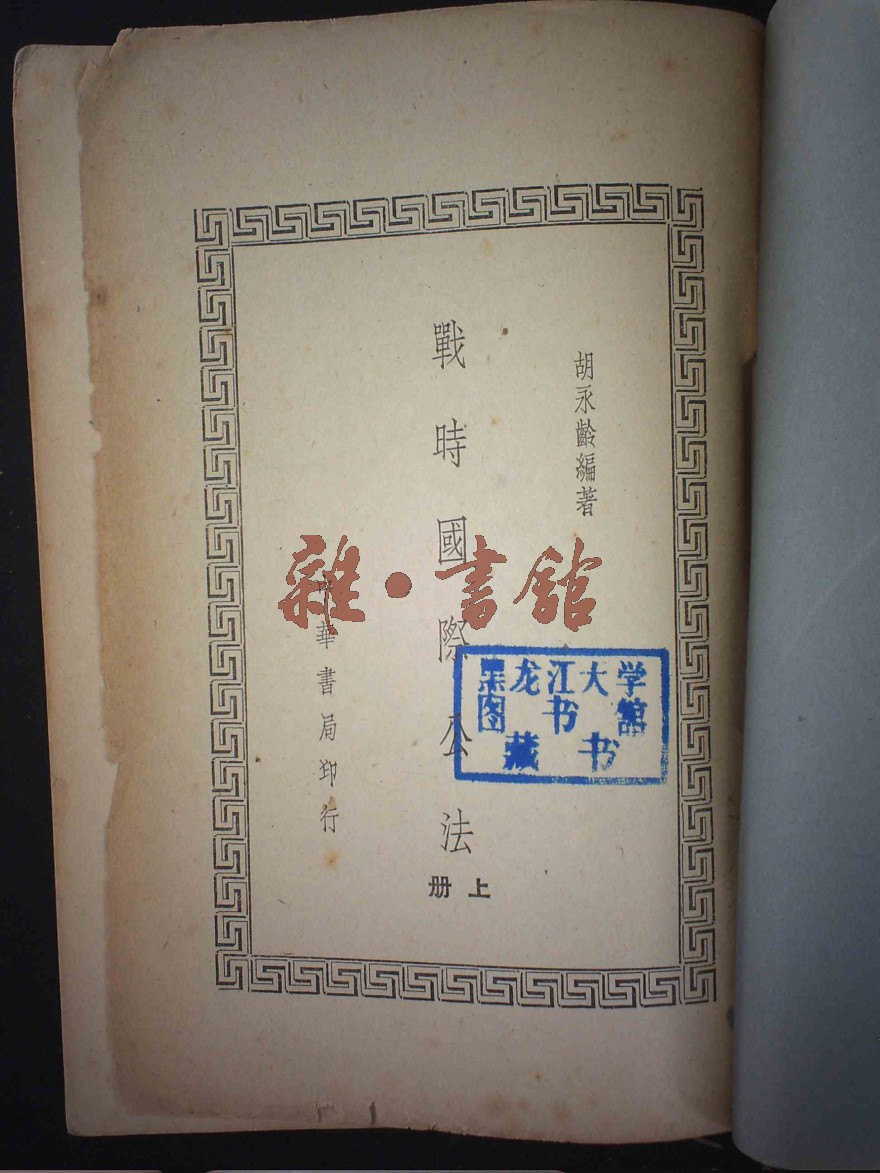 胡永齡編著
戰時國際公法
上册
華書局印行
黑龙江大学
图书館
藏书
雜·書館